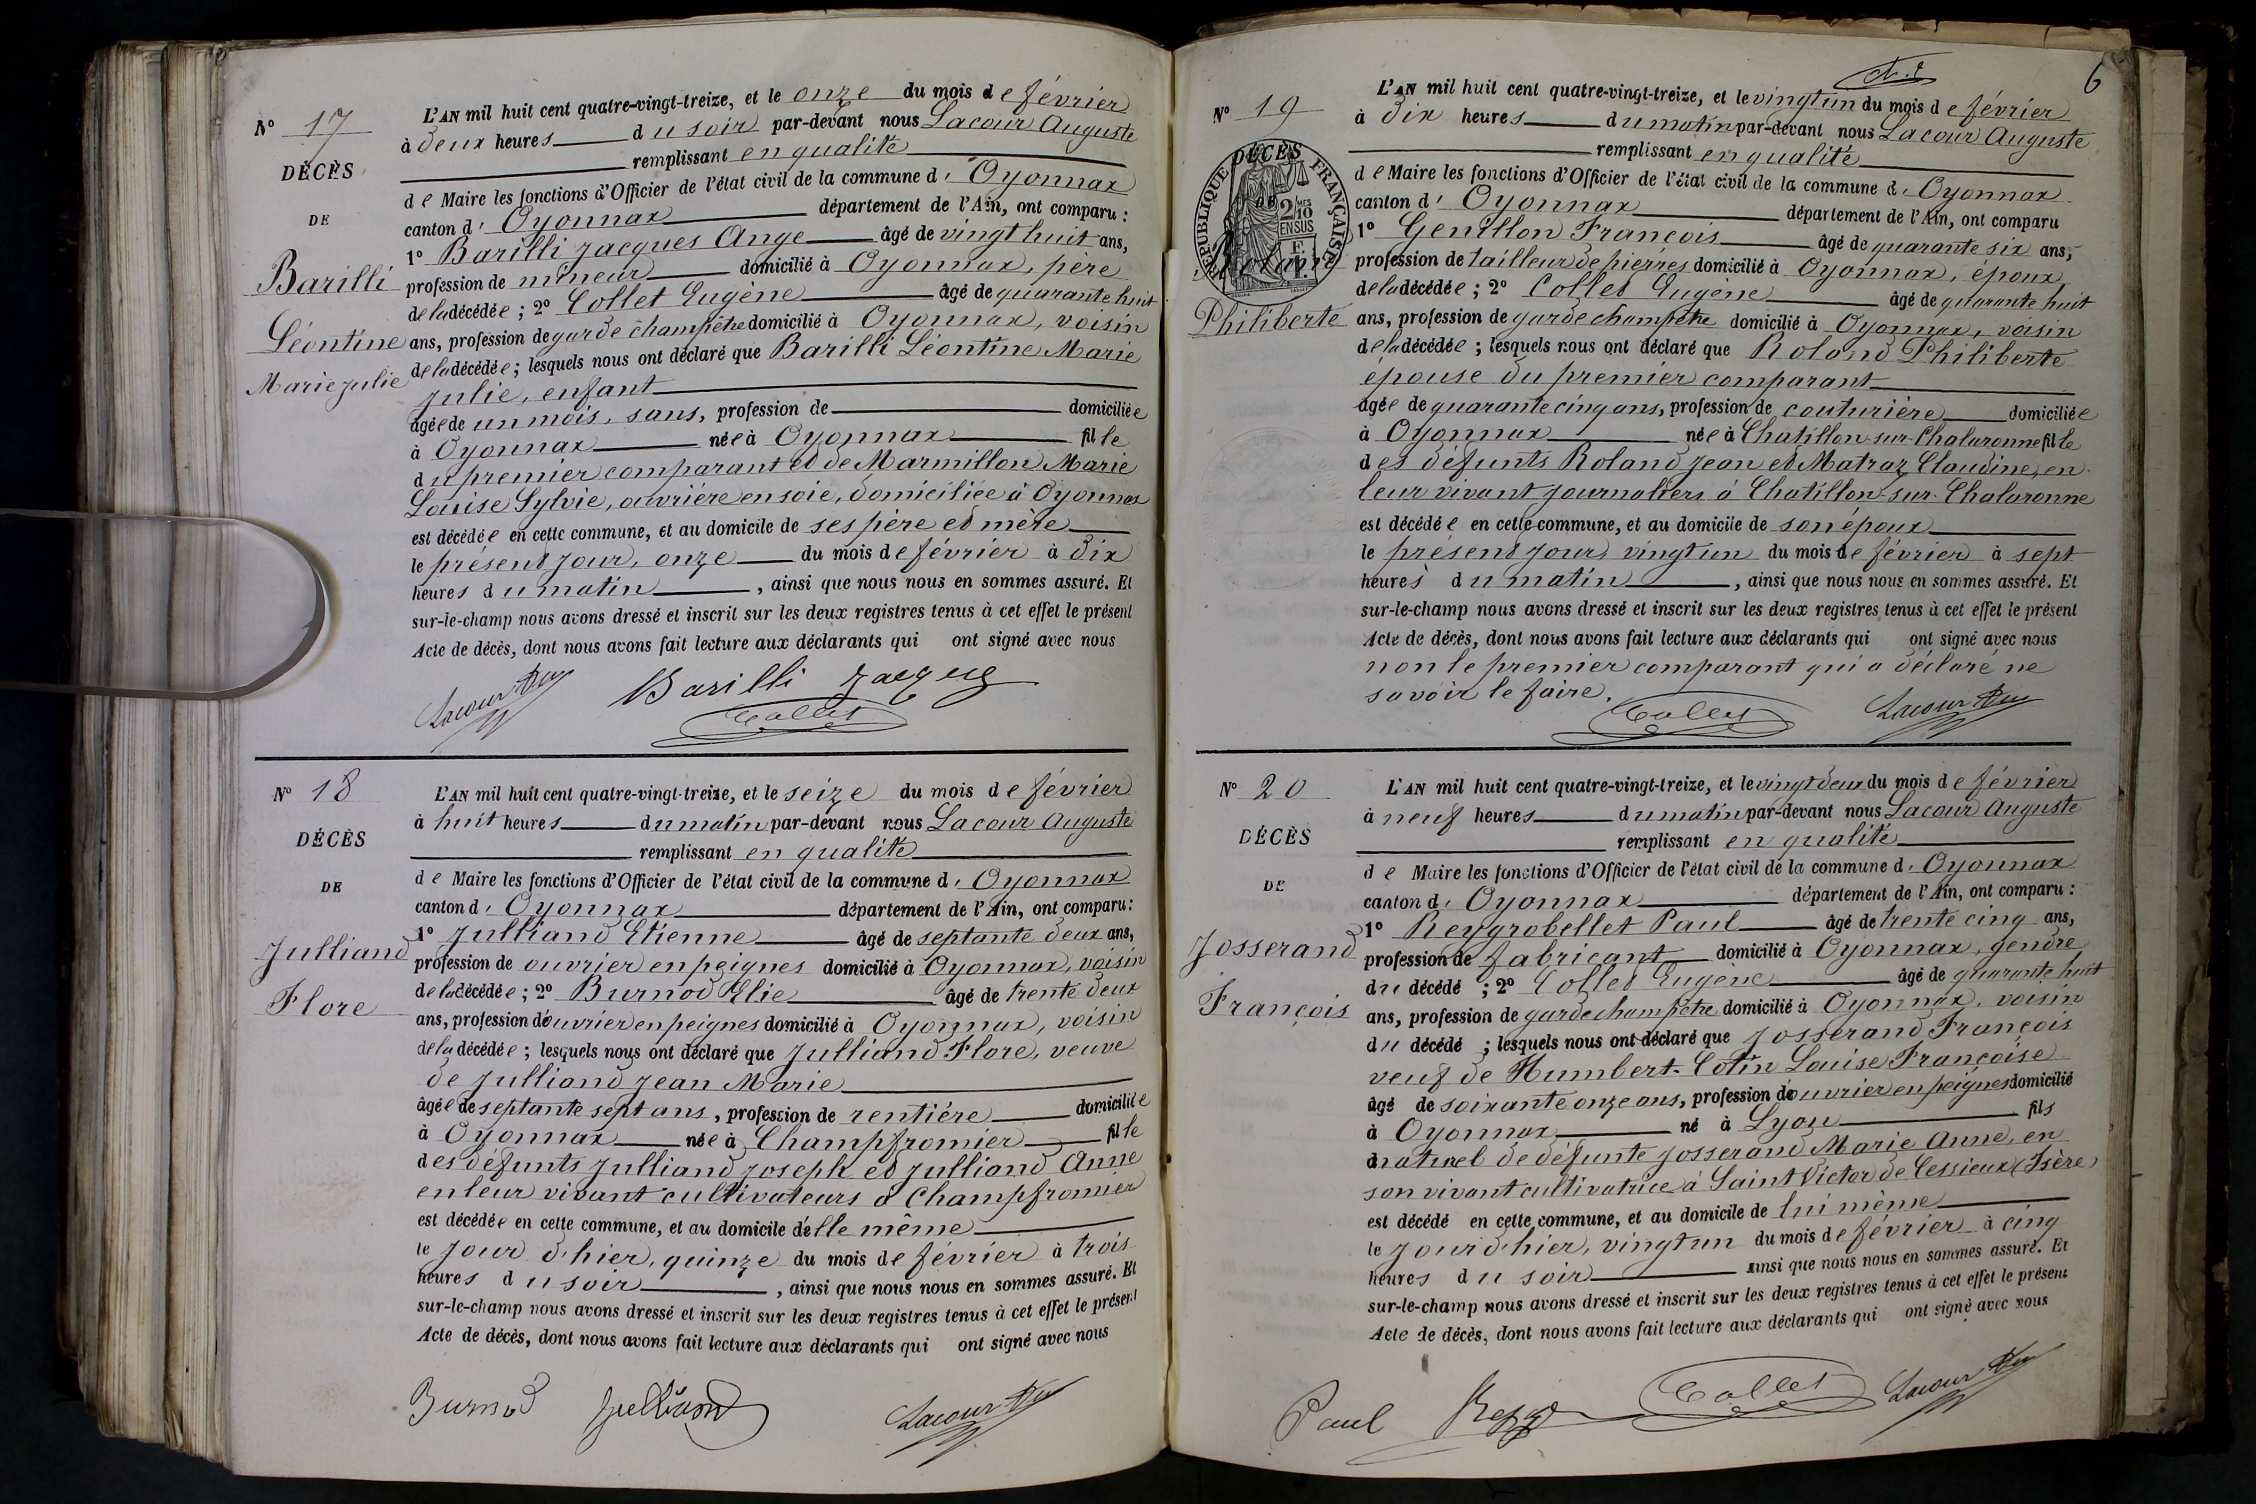 N° 17
DÉCÈS
DE
Barilli
Léontine
Marie Julie
L'AN mil huit cent quatre-vingt-treize, et le onze du mois de février
à deux heures du soir par-devant nous Lacour Auguste
remplissant en qualité
de Maire les fonctions d'Officier de l'état civil de la commune d' Oyonnax
canton d' Oyonnax département de l'Ain, ont comparu :
1° Barilli Jacques Ange âgé de vingt huit ans,
profession de mineur domicilié à Oyonnax, père
de la décédée ; 2° Collet Eugène âgé de quarante huit
ans, profession de garde champêtre domicilié à Oyonnax, voisin
de la décédée ; lesquels nous ont déclaré que Barilli Léontine Marie
Julie, enfant
âgée de un mois, sans, profession de domiciliée
à Oyonnax née à Oyonnax fille
du premier comparant et de Marmillon Marie
Louise Sylvie, ouvrière en soie, domiciliée à Oyonnax
est décédée en cette commune, et au domicile de ses père et mère
le présent jour, onze du mois de février à dix
heures du matin, ainsi que nous nous en sommes assuré. Et
sur-le-champ nous avons dressé et inscrit sur les deux registres tenus à cet effet le présent
Acte de décès, dont nous avons fait lecture aux déclarants qui ont signé avec nous
Lacour Aug
Barilli Jacque
Collet
N° 18
DÉCÈS
DE
Julliand
Flore
L'AN mil huit cent quatre-vingt-treize, et le seize du mois de février
à huit heures du matin par-devant nous Lacour Auguste
remplissant en qualité
de Maire les fonctions d'Officier de l'état civil de la commune d' Oyonnax
canton d' Oyonnax département de l'Ain, ont comparu :
1° Julliand Etienne âgé de septante deux ans,
profession de ouvrier en peignes domicilié à Oyonnax, voisin
de la décédée ; 2° Burnod Elie âgé de trente deux
ans, profession d'ouvrier en peignes domicilié à Oyonnax, voisin
de la décédée ; lesquels nous ont déclaré que Julliand Flore, veuve
de Julliand Jean Marie
âgée de septante sept ans, profession de rentière domiciliée
à Oyonnax née à Champfromier fille
des défunts Julliand Joseph et Julliand Anne
en leur vivant cultivateurs à Champfromier
est décédée en cette commune, et au domicile d'elle même
le jour d'hier, quinze du mois de février à trois
heures du soir, ainsi que nous nous en sommes assuré. Et
sur-le-champ nous avons dressé et inscrit sur les deux registres tenus à cet effet le présent
Acte de décès, dont nous avons fait lecture aux déclarants qui ont signé avec nous
Burnod Julliand Lacour Aug
6
N° 19
DÉCÈS
DE
RÉPUBLIQUE FRANÇAISE
2/10 EN SUS
Roland
Philiberte
L'AN mil huit cent quatre-vingt-treize, et le vingt un du mois de février
à dix heures du matin par-devant nous Lacour Auguste
remplissant en qualité
de Maire les fonctions d'Officier de l'état civil de la commune d' Oyonnax
canton d' Oyonnax département de l'Ain, ont comparu
1° Genillon François âgé de quarante six ans,
profession de tailleur de pierres domicilié à Oyonnax, époux
de la décédée ; 2° Collet Eugène âgé de quarante huit
ans, profession de garde champêtre domicilié à Oyonnax, voisin
de la décédée ; lesquels nous ont déclaré que Roland Philiberte
épouse du premier comparant
âgée de quarante cinq ans, profession de couturière domiciliée
à Oyonnax née à Chatillon-sur-Chalaronne fille
des défunts Roland Jean et Matraz Claudine, en
leur vivant journaliers à Chatillon-sur-Chalaronne
est décédée en cette commune, et au domicile de son époux
le présent jour, vingt un du mois de février à sept
heures du matin, ainsi que nous nous en sommes assuré. Et
sur-le-champ nous avons dressé et inscrit sur les deux registres tenus à cet effet le présent
Acte de décès, dont nous avons fait lecture aux déclarants qui ont signé avec nous
non le premier comparant qui a déclaré ne
savoir le faire.
Collet Lacour Aug
N° 20
DÉCÈS
DE
Josserand
François
L'AN mil huit cent quatre-vingt-treize, et le vingt deux du mois de février
à neuf heures du matin par-devant nous Lacour Auguste
remplissant en qualité
de Maire les fonctions d'Officier de l'état civil de la commune d' Oyonnax
canton d' Oyonnax département de l'Ain, ont comparu :
1° Reygrobellet Paul âgé de trente cinq ans,
profession de fabricant domicilié à Oyonnax, gendre
du décédé ; 2° Collet Eugène âgé de quarante huit
ans, profession de garde champêtre domicilié à Oyonnax, voisin
du décédé ; lesquels nous ont déclaré que Josserand François
veuf de Humbert-Cotin Louise Françoise
âgé de soixante onze ans, profession d'ouvrier en peignes domicilié
à Oyonnax né à Lyon fils
naturel de défunte Josserand Marie Anne, en
son vivant cultivatrice à Saint Victor de Cessieux (Isère)
est décédé en cette commune, et au domicile de lui même
le jour d'hier, vingt un du mois de février à cinq
heures du soir ainsi que nous nous en sommes assuré. Et
sur-le-champ nous avons dressé et inscrit sur les deux registres tenus à cet effet le présent
Acte de décès, dont nous avons fait lecture aux déclarants qui ont signé avec nous
Paul Collet Lacour Aug